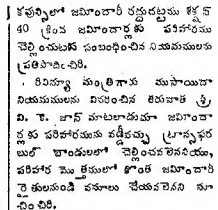 కమిన్సిలో జమీందారీ రద్దుచట్టము శక్షన్
40 క్రింద జమీందార్లకు పరిహారము
చెల్లించుటకు సంబంధించిన నియమములను
ప్రతిపాదించిరి.
రివిన్యూ మంత్రిగారు ముసాయిదా
నియమములను వివరించిన తరువాత శ్రీ
వి. కె. జాన్ మాటలాడుచూ జమీందా
ర్లకు పరిహారమును వడ్డీవచ్చు ట్రాన్సుఫర
బుల్ బాండులలో చెల్లించవలెననియు,
పరిహార మొత్తములో కొంత జమీందారీ
రైతులనుండి వసూలు చేయవలెనని సూ
చించిరి.